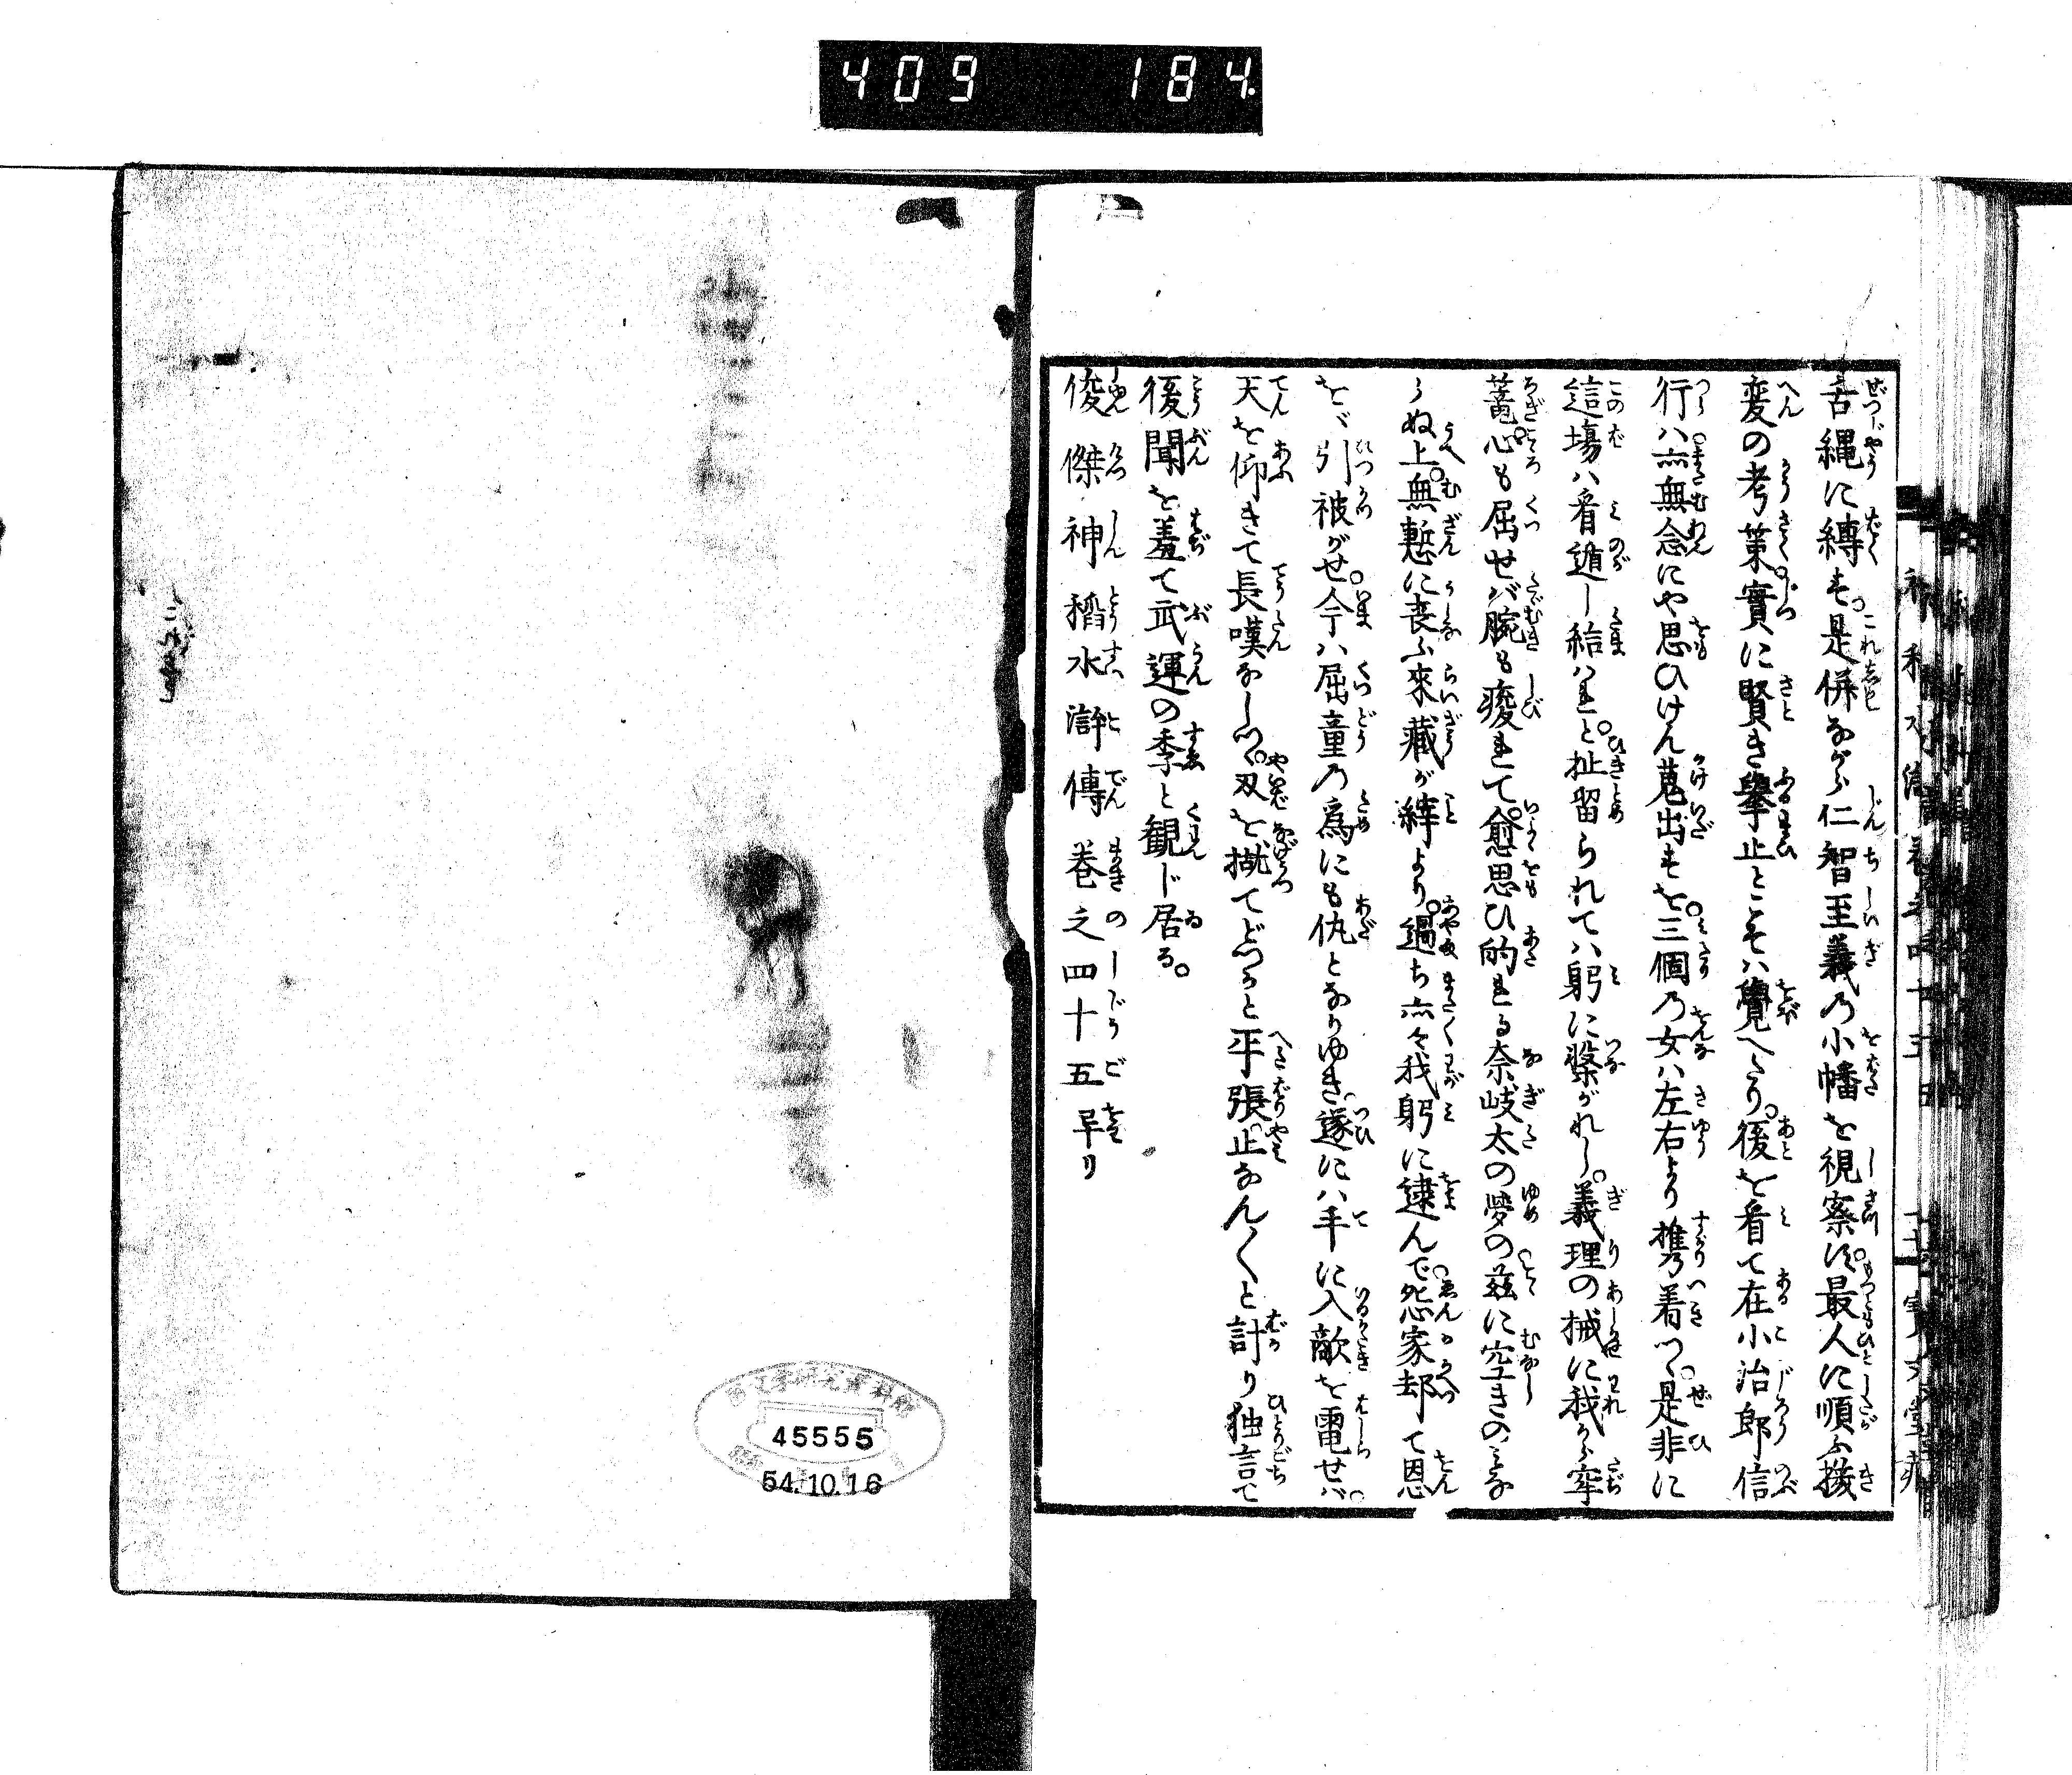 409 184
舌縄に縛す是併ながら仁智至義の小幡を視察に最人に順ふ接
変の考策實に賢き擧止とこそハ覺へたり。後を看て在小治郎信
行ハ亦無念にや思ひけん蒐出すを。三個の女ハ左右より携り着つゝ是非に
這塲ハ看遁し給はれと。扯留られてハ躬に繋がれし。義理の械に我から牢
篭。心も屈せバ腕も痿れて。愈思ひ的れる奈岐太の夢の茲に空きのミな
らぬ上。無慙に喪ふ來藏が縡より。過ち亦々我躬に逮んで。怨家却て恩
をバ引被がせ。今ハ屈童の爲にも仇となりゆき。遂にハ手に入敵を電せバ。
天を仰きて長嘆なしつゝ。刄を撇てどつかと平張。止なん〳〵と計り独言て
後聞を羞て武運の季と観じ居る。
俊傑神稻水滸傳巻之四十五早リ
45555
54.10.16